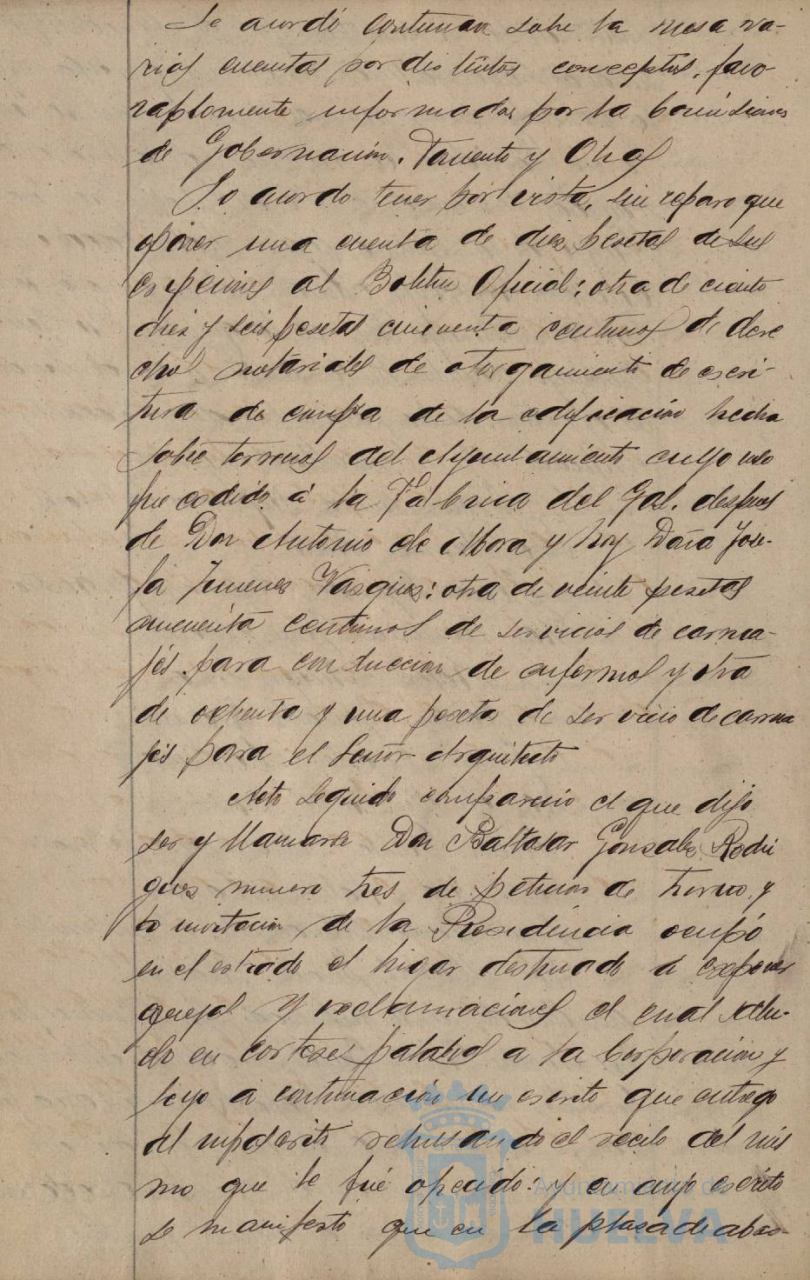 Se acordó continuaran sobre la mesa va-
rias cuentas por distintos conceptos, favo
rablemente informadas por la Comisiones
de Gobernación, Fomento y Obras
Se acordó tener por vista, sin reparo que
oponer una cuenta de diez pesetas de sus
cripciones al Boletin Oficial; otra de ciento
diez y seis pesetas cincuenta centimos de dere
chos notariales de otorgamiento de escri-
tura de compra de la edificación hecha
sobre terrenos del Ayuntamiento cuyo uso
fue cedido á la Fabrica del Gas, despues
de Don Antonio de Mora y hoy Doña Jose-
fa Jimenez Vazquez; otra de veinte pesetas
cincuenta centimos de servicios de carrua-
jes para conduccion de enfermos y otra
de ochenta y una peseta de servicio de carrua
jes para el Señor Arquitecto
Acto seguido compareció el que dijo
ser y llamarse Don Baltasar Gonzalez Rodri
guez numero tres de peticion de turno, y
a invitación de la Presidencia ocupó
en el estrado el lugar destinado á exponer
quejas y reclamaciones el cual saludo
en corteses palabras á la Corporación y
leyo á continuación un escrito que entregó
al infrascrito rehusando el recibo del mis
mo que le fué ofrecido: y en cuyo escrito
se manifesto que en la plaza de abas-
Ayuntamiento de
HUELVA